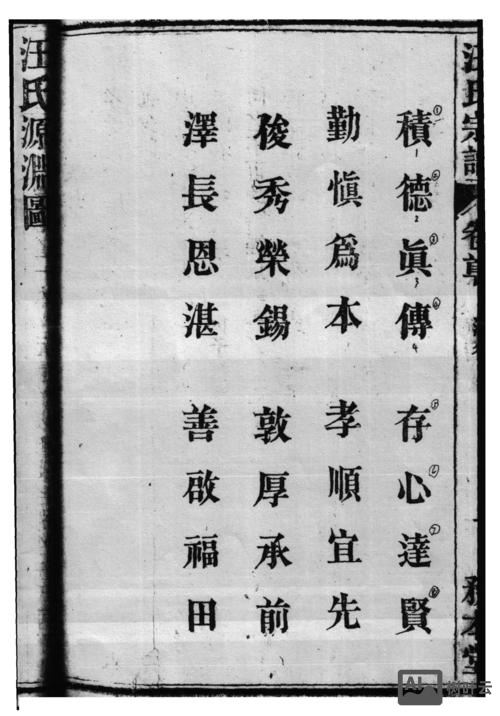 汪氏宗譜 卷首
積德眞傳 存心達賢
勤愼為本 孝順宜先
俊秀榮錫 敦厚承前
澤長恩湛 善啟福田
汪氏源淵圖
樹叶云